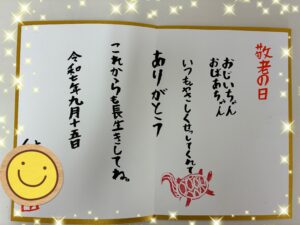 敬老の日
おじいちゃん
おばあちゃん
いつもやさしくせっしてくれて
ありがとう
これからも長生きしてね。
令和七年九月十五日